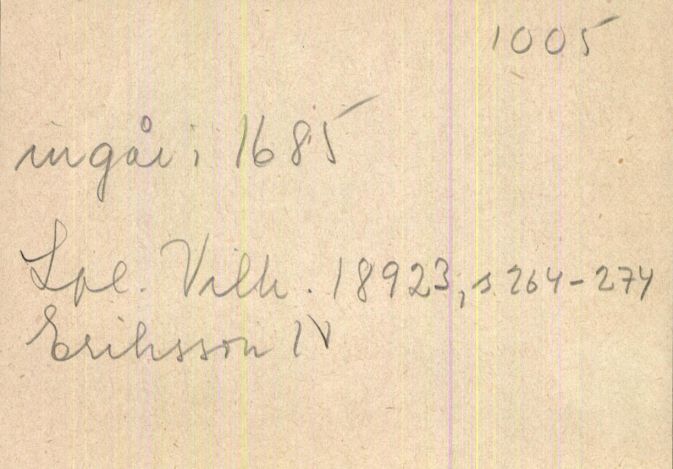 1005
ingår i 1685
Lpl. Vilh. 18923, s 264-274
Eriksson N